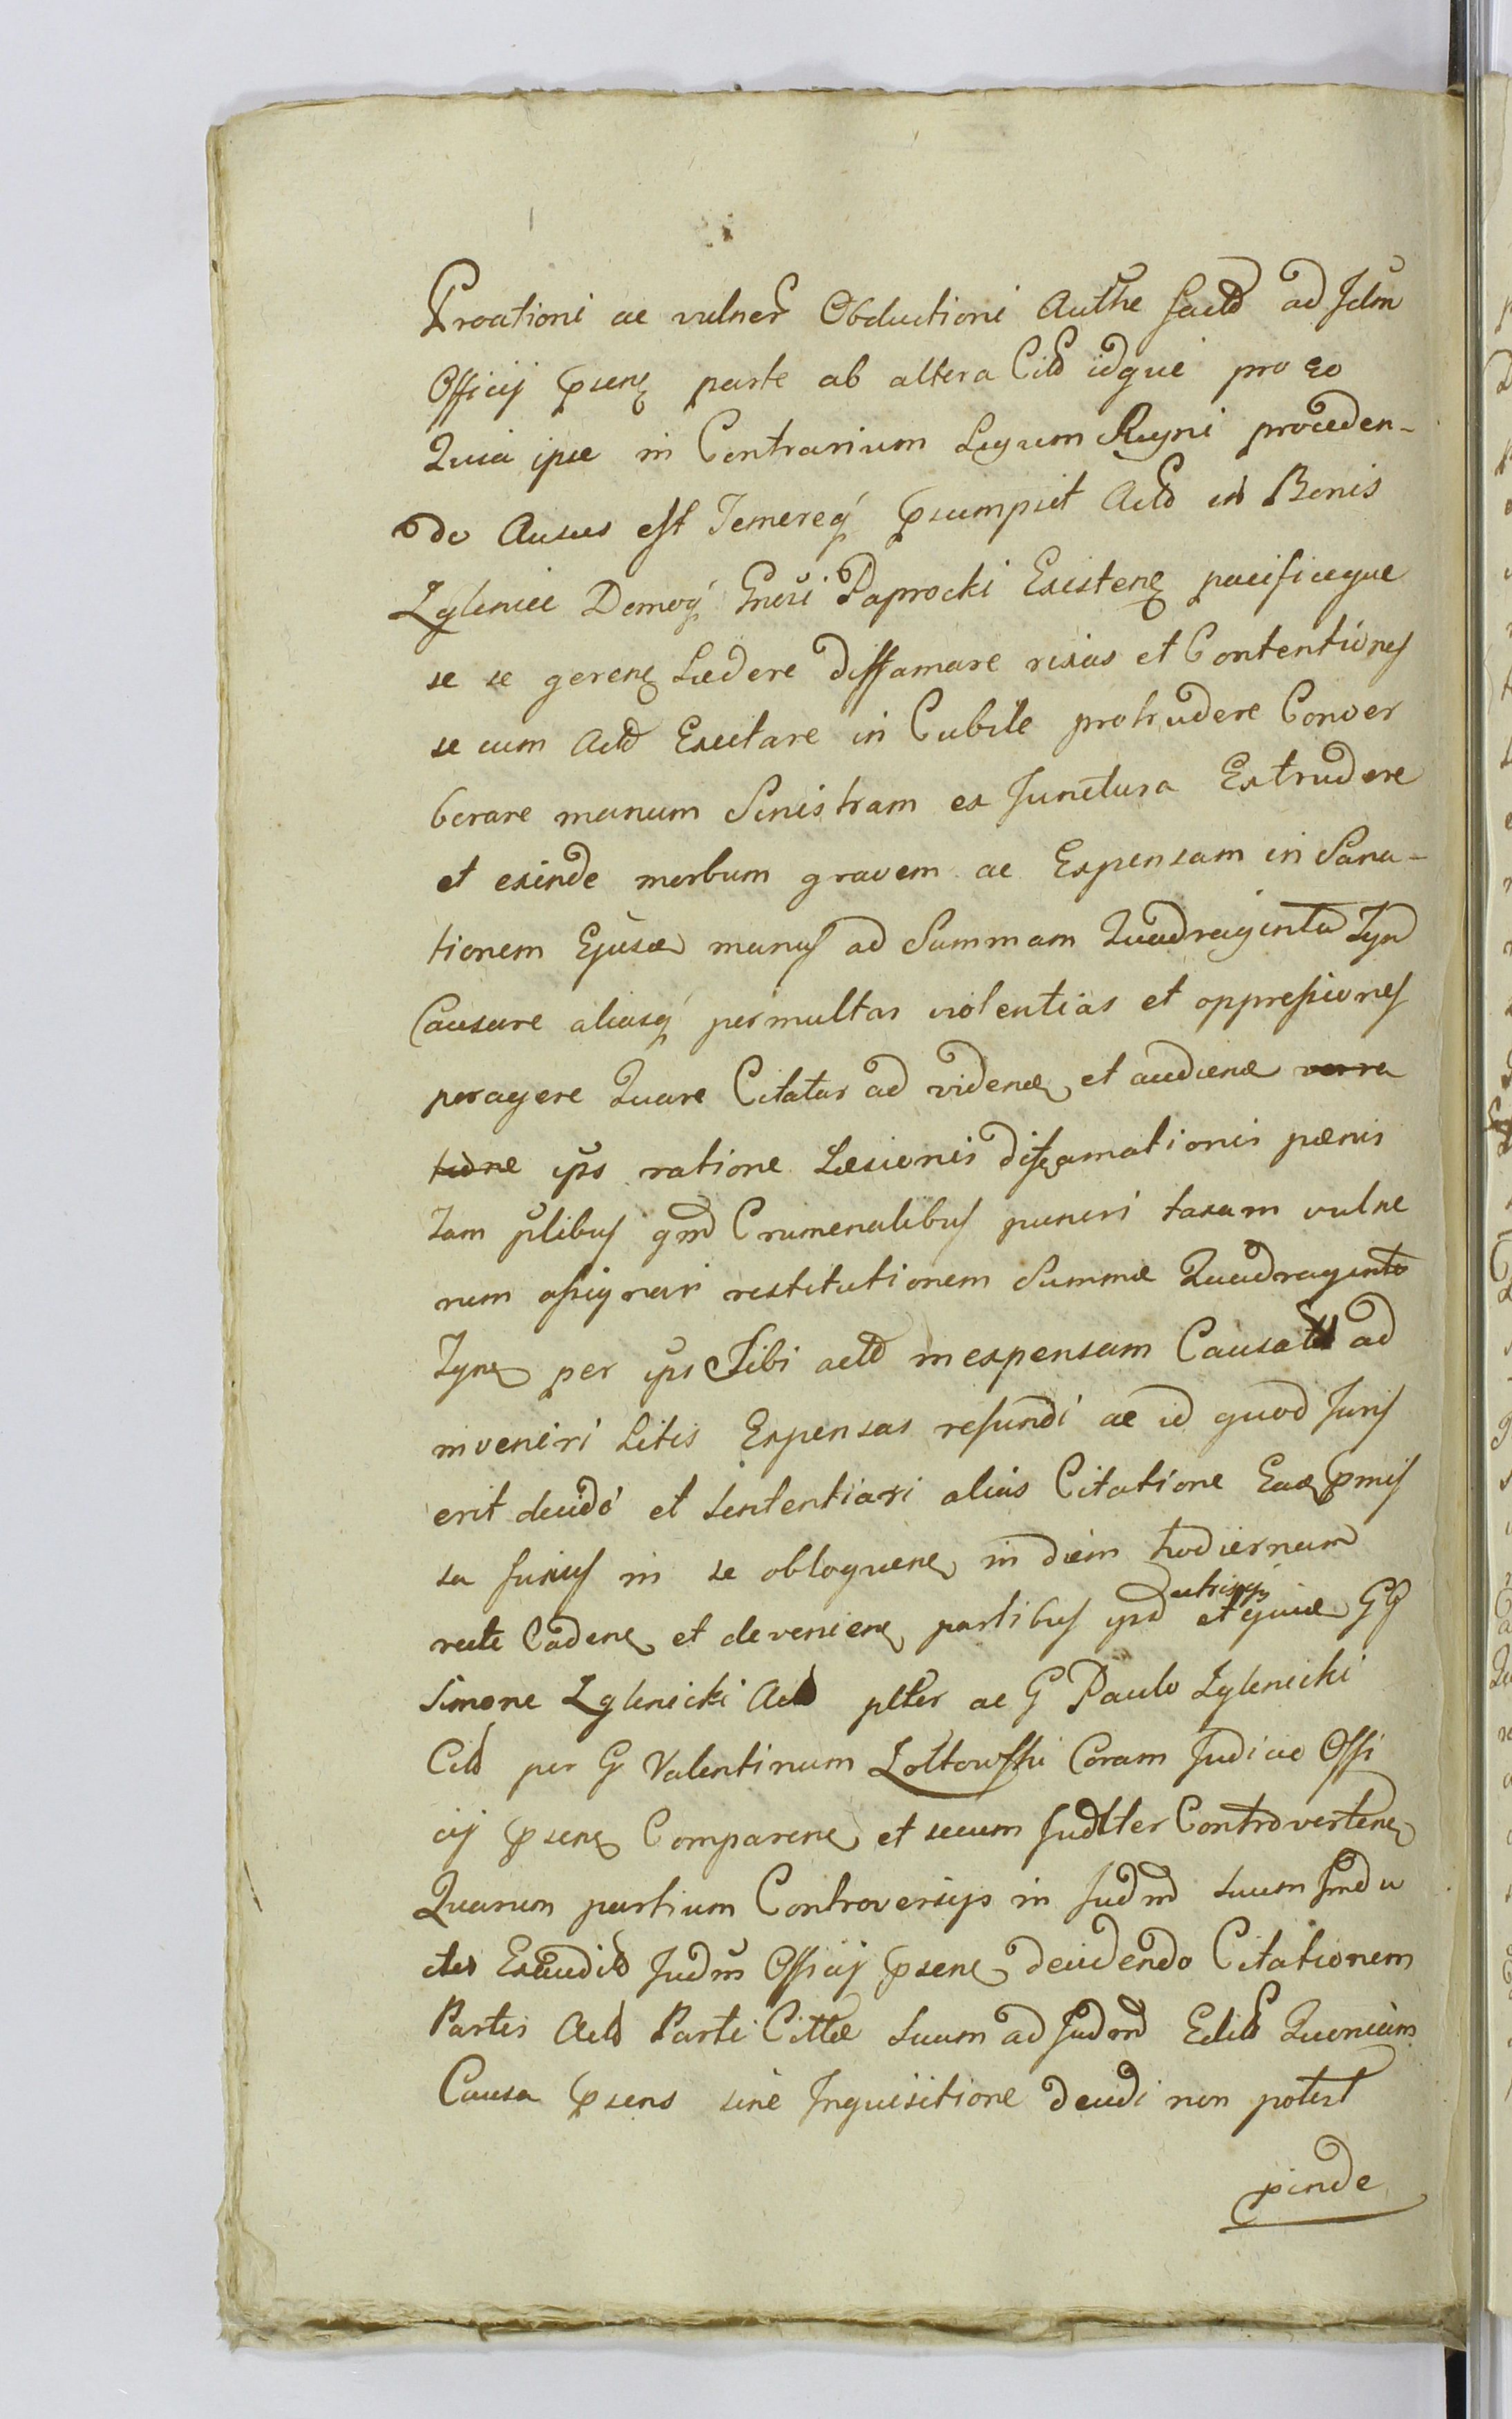 Proationi ac vulner Obductioni Authe factd ad Jdm
Officij pseng parte ab altera Citd idque pro eo
Quia ipse in Contrarium Legum Regni proceden-
do Ausus est Temereq psumpsit Actd in Bonis
Zglenice Domoq Gnosi Paprocki Existeng pacificeque
se se gereng Lædere diffamare rixas et Contentiones
se cum Actd Excitare in Cubile protrudere Conver
berare manum Sinistram ex Junctura Extrudere
et exinde morbum gravem ac Expensam in Sana-
tionem Ejusd manus ad Summam Quadraginta Tyn
Causare aliasq permultas violentias et oppressiones
peragere Quare Citatur ad videnđ et audienđ verra
tione ips ratione Læsionis diffamationis pænis
Tam plibus qm Crumenalibus puniri taxam vulne
rum assignari restitutionem Summæ Quadraginta
Tyn per ips Sibi actd in expensam Causatd ad
inveniri Litis Expensas refundi ac id quod Juris
erit decidi et sententiari alias Citatione Ead pmis
sa fusius in se obloquen in diem hodiernam
recte Caden et devenien partibus ipsd utrisq et quid GG
Simone Zglenicki Actd plter ac G Paulo Zglenicki
Citd per G Valentinum Zoltowski Coram Judicio Offi
cij psen Comparen et secum Judlter Controverten
Quarum partium Controversijs in Judm suum Indu
ctis Exaudits Judm Officij psen decidendo Citationem
Partis Actd Parti Cittæ suum ad Judm Edid Quoniam
Causa psens sine Inquisitione decidi non potest
pinde